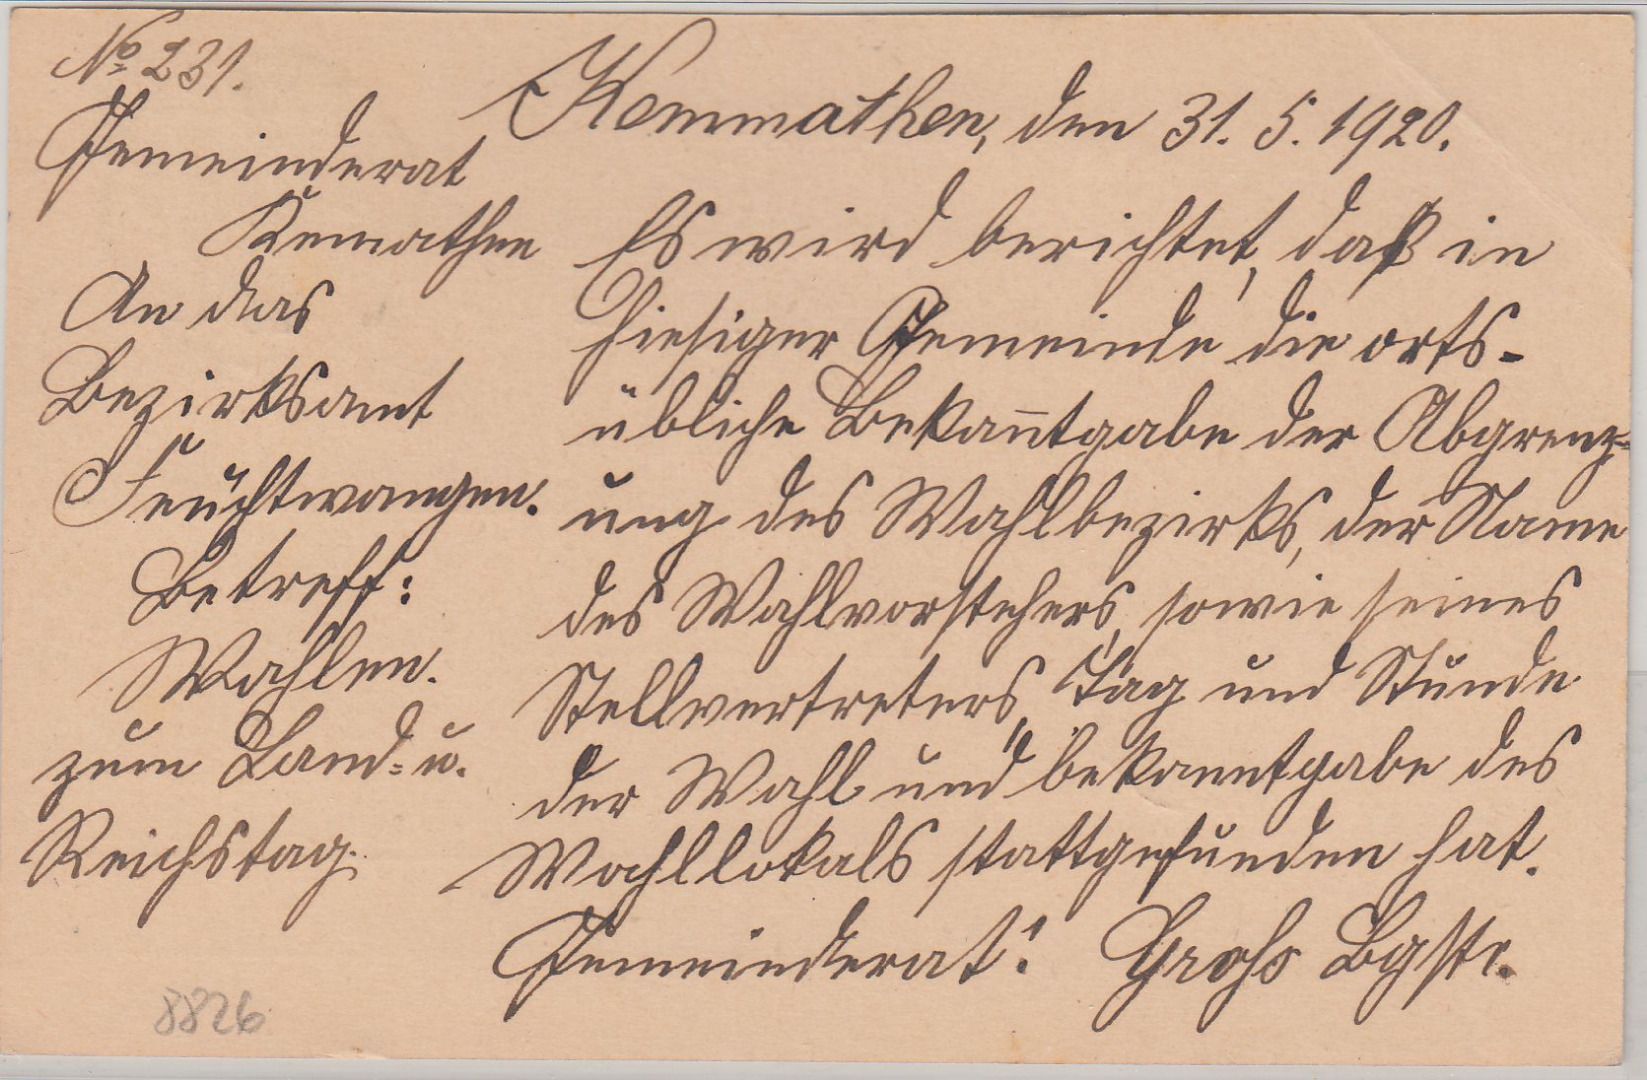 No 231.
Gemeinderat
Kemathen
An das
Bezirksamt
Feuchtwangen.
Betreff:
Wahlen.
zum Land- u.
Reichstag.
Kemmathen, den 31. 5. 1920.
Es wird berichtet, daß in
hiesiger Gemeinde die orts-
übliche Bekan̅tgabe der Abgrenz-
ung des Wahlbezirks, der Name
des Wahlvorstehers, sowie seines
Stellvertreters, Tag und Stunde
der Wahl und bekanntgabe des
Wahllokals stattgefunden hat.
Gemeinderat: Groß Bgstr.
8826